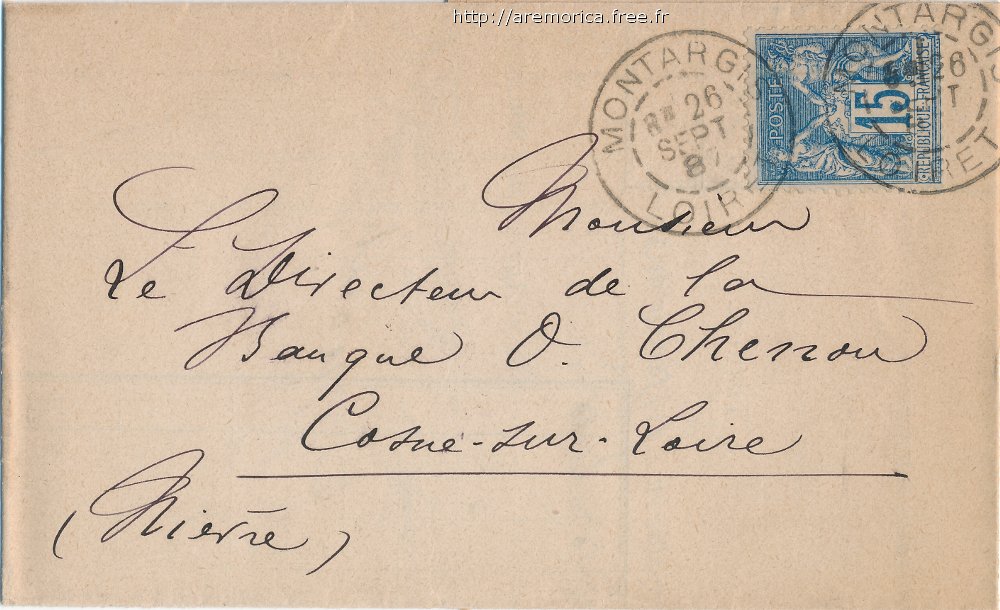 http://aremorica.free.fr
MONTARGIS
8E 26
SEPT
LOIRET
POSTES
15
REPUBLIQUE FRANCAISE
MONTARGIS
26
LOIRET
Monsieur
Le Directeur de la
Banque O. Chenou
Cosne-sur-Loire
(Nièvre)